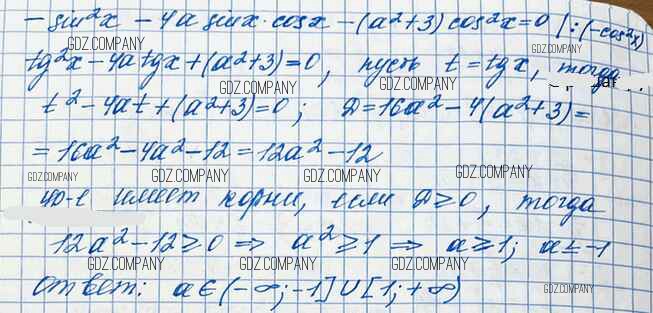 - sin²x - 4a sinx·cosx - (a²+3) cos²x = 0 | : (-cos²x)
GDZ.COMPANY
tg²x - 4a tgx + (a²+3) = 0, пусть t = tgx, тогда
GDZ.COMPANY GDZ.COMPANY GDZ.COMPANY
t² - 4at + (a²+3) = 0; D = 16a² - 4(a²+3) =
= 16a² - 4a² - 12 = 12a² - 12
GDZ.COMPANY GDZ.COMPANY GDZ.COMPANY
ур-е имеет корни, если D ≥ 0, тогда
GDZ.COMPANY GDZ.COMPANY
12a² - 12 ≥ 0 ⇒ a² ≥ 1 ⇒ a ≥ 1; a ≤ -1
GDZ.COMPANY GDZ.COMPANY GDZ.COMPANY
Ответ: a ∈ (-∞; -1] ∪ [1; +∞)
GDZ.COMPANY